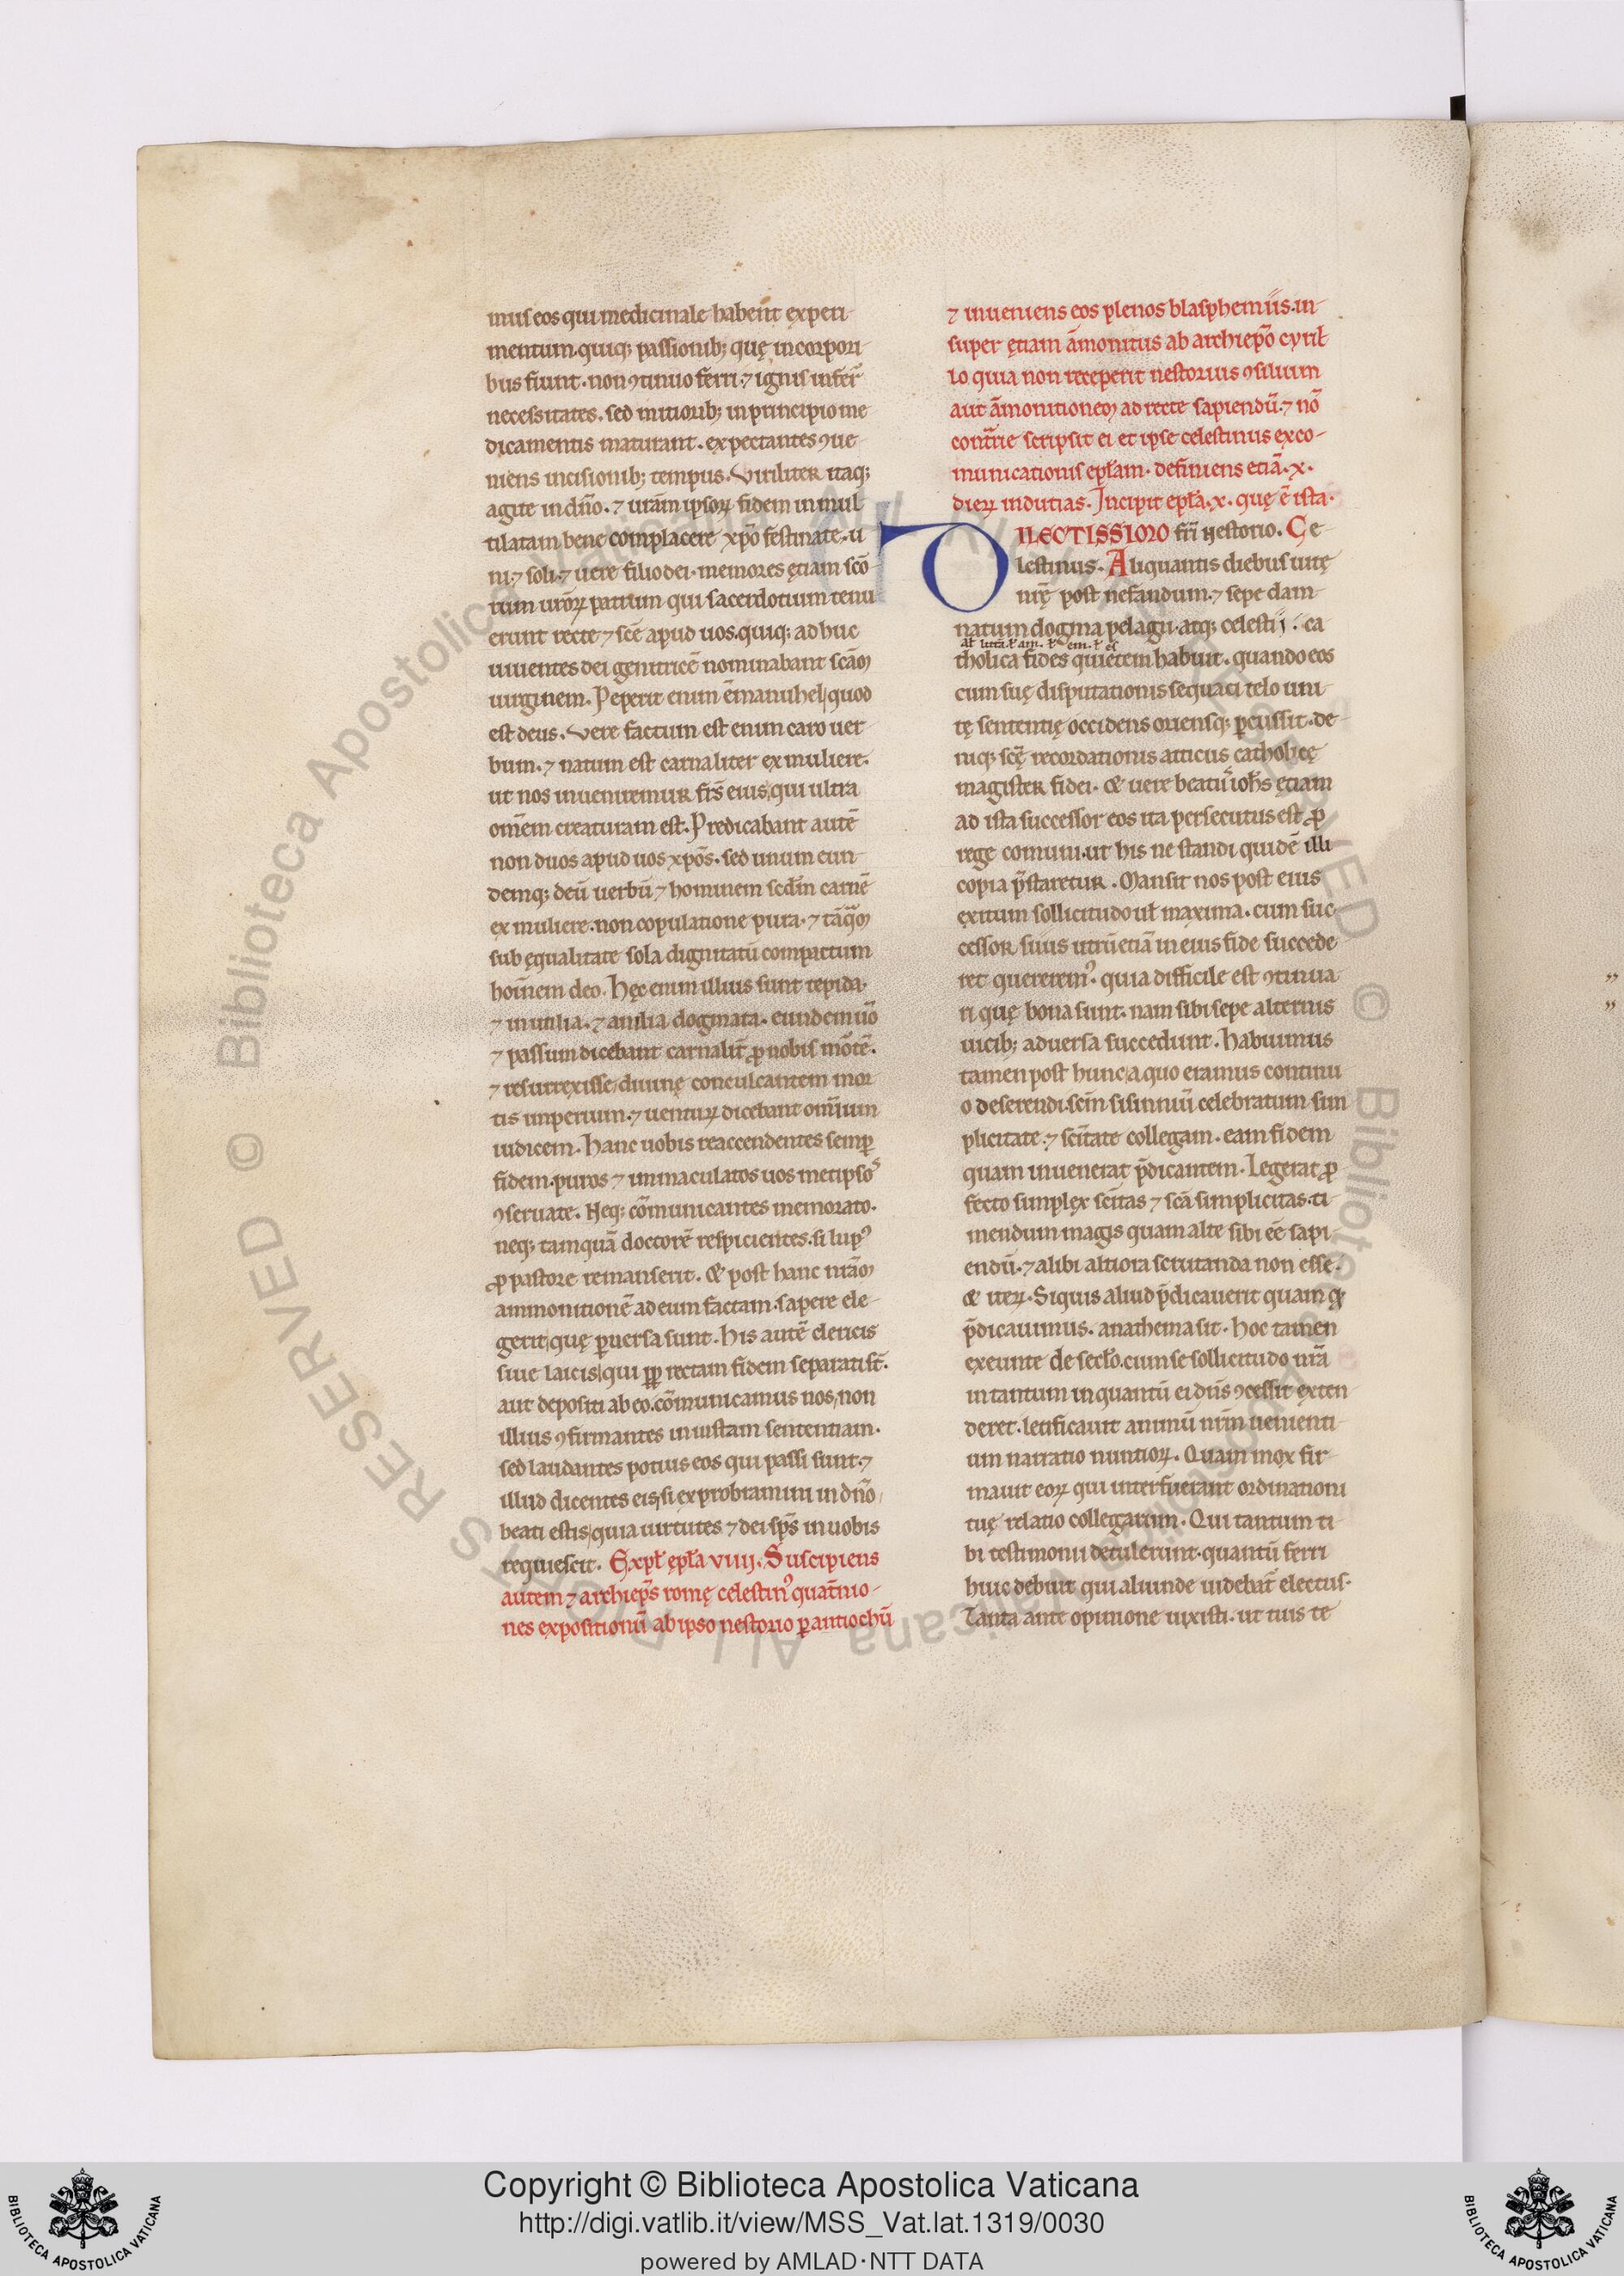 mus eos qui medicinale habent experi-
mentum. quiq; passionib; quę in corpori-
bus fiunt. non ꝯtinuo ferri. ⁊ ignis infer̄
necessitates. sed mitiorib; in principio me
dicamentis maturant. expectantes ꝯue-
niens incisionib; tempus. Viriliter itaq;
agite in dn̄o. ⁊ ur̄am ipsoꝝ fidem in mul
tilatam bene complacere xp̄o festinate. u
ni. ⁊ soli. ⁊ uere filio dei. memores ętiam scō
rum ur̄oꝝ patrum qui sacerdotium tenu
erunt recte ⁊ scē apud uos. quiq; ad huc
uiuentes dei genitricē nominabant scām
uirginem. Peperit enim ēmanuhel quod
est deus. Vere factum est enim caro uer
bum. ⁊ natum est carnaliter ex muliere.
ut nos inueniremur fr̄s eius, qui ultra
om̄em creaturam est. Predicabant autē
non duos apud uos xp̄os. sed unum eun
demq; deū uerbū ⁊ hominem scd̄m carnē
ex muliere. non copulatione pura. ⁊ tāquam
sub ęqualitate sola dignitatū compactum
hoīem deo. Hęc enim illius sunt tepida.
⁊ inutilia. ⁊ anilia dogmata. eundem uō
⁊ passum dicebant carnalit̄ ꝓ nobis mōtē.
⁊ resurrexisse, diuinę conculcantem mor
tis imperium. ⁊ uentuꝝ dicebant om̄ium
iudicem. Hanc uobis reaccendentes semp̱
fidem. puros ⁊ immaculatos uos met ipsos
ꝯseruate. Neq; cōmunicantes memorato.
neq; tamquā doctorē respicientes. si lupꝰ
ꝓ pastore remanserit. & post hanc nr̄am
ammonitionē ad eum factam. sapere ele-
gerit quę ꝑuersa sunt. His autē clericis
siue laicis, qui ꝓꝑ rectam fidem separati st̄.
aut depositi ab eo. cōmunicamus nos, non
illius ꝯfirmantes iniustam sententiam.
sed laudantes potius eos qui passi sunt. ⁊
illud dicentes eis, si exprobramini in dn̄o,
beati estis, quia uirtutes ⁊ dei sp̄s in uobis
requiescit. Expl̄ ępl̄a VIIII. Suscipiens
autem ⁊ archiep̄s romę celestinꝰ quat̄nio-
nes expositionū ab ipso nestorio ꝑ antiochū
⁊ inueniens eos plenos blasphemiis. in-
super ętiam āmonitus ab archiep̄o cyril
lo quia non receperit nestorius ꝯsilium
aut āmonitionem ad recte sapiendū. ⁊ nō
contr̄ie scripsit ei et ipse celestinus exco-
municationis epl̄am. definiens etiā. x.
dieꝝ indutias. Incipit epl̄a. x. quę ē ista.
DILECTISSIMO fr̄i nestorio. Ce-
lestinus. Aliquantis diebus uitę
nr̄ę post nefandum. ⁊ sepe dam-
natum dogma pelagii. atq; celestii. ca
tholica fides quietem habuit. quando eos
cum suę disputationis sequaci telo uni-
tę sententię occidens oriensq; ꝑcussit. de-
niq; scę̄ recordationis atticus catholicę
magister fidei. & uere beati ioh̄s ętiam
ad ista successor eos ita persecutus est ꝓ
rege comuni. ut his ne standi quidē illi
copia p̄staretur. Mansit nos post eius
exitum sollicitudo ul̄ maxima. cum suc
cessor suus utrū etiā in eius fide succede
ret quereremꝰ. quia difficile est ꝯtinua
ri quę bona sunt. nam sibi sepe alternis
uicib; aduersa succedunt. Habuimus
tamen post hunc, a quo eramus continu
o deserendi. scm̄ sisinniū celebratum sim
plicitate. ⁊ sc̄itate collegam. eam fidem
quam inuenerat p̄dicantem. Legerat ꝓ
fecto simplex sc̄itas ⁊ scā simplicitas. ti-
mendum magis quam alte sibi eē sapi-
endū. ⁊ alibi altiora scrutanda non esse.
& iteꝝ. Siquis aliud p̄dicauerit quam q̄
p̄dicauimus. anathema sit. Hoc tamen
exeunte de secl̄o. cum se sollicitudo nr̄a
in tantum in quantū ei dn̄s ꝯcessit exten
deret. letificauit animū nr̄m uenienti-
um narratio nuntioꝝ. Quam mox fir-
mauit eoꝝ qui interfuerant ordinationi
tuę relatio collegarum. Qui tantum ti-
bi testimonii detulerunt. quantū ferri
huic debuit qui aliunde uidebat̄ electus.
Tanta ante opinione uixisti. ut tuis te
Copyright © Biblioteca Apostolica Vaticana
http://digi.vatlib.it/view/MSS_Vat.lat.1319/0030
powered by AMLAD·NTT DATA
BIBLIOTECA APOSTOLICA VATICANA
BIBLIOTECA APOSTOLICA VATICANA